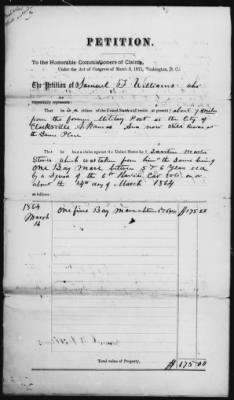 PETITION.
To the Honorable Commissioners of Claims,
Under the Act of Congress of March 3, 1871, Washington, D. C.
The Petition of Samuel T Williams who
respectfully represents:
That he is a citizen of the United States and resides at present about 7 miles
from the former Military Post at the City of
Clarksville Arkansas and now resides at
the Same Place
That he has a claim against the United States for Quarter Master
Stores which was taken from him the Same being
One Bay Mare between 5 & 6 years old
by a Squad of the 6th Cav Vols on or
about the 14th day of March 1864
as follows:
1864
March
14
One fine Bay Mare $175 00
Total value of Property, $175.00